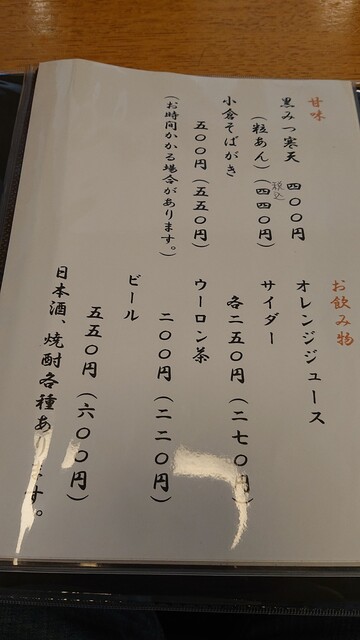 甘味
黒みつ寒天 四〇〇円
(粒あん) (四四〇円)
税込
小倉そばがき
五〇〇円 (五五〇円)
(お時間かかる場合があります。)
お飲み物
オレンジジュース
サイダー
各二五〇円 (二七〇円)
ウーロン茶
二〇〇円 (二二〇円)
ビール
五五〇円 (六〇〇円)
日本酒、焼酎各種あります。